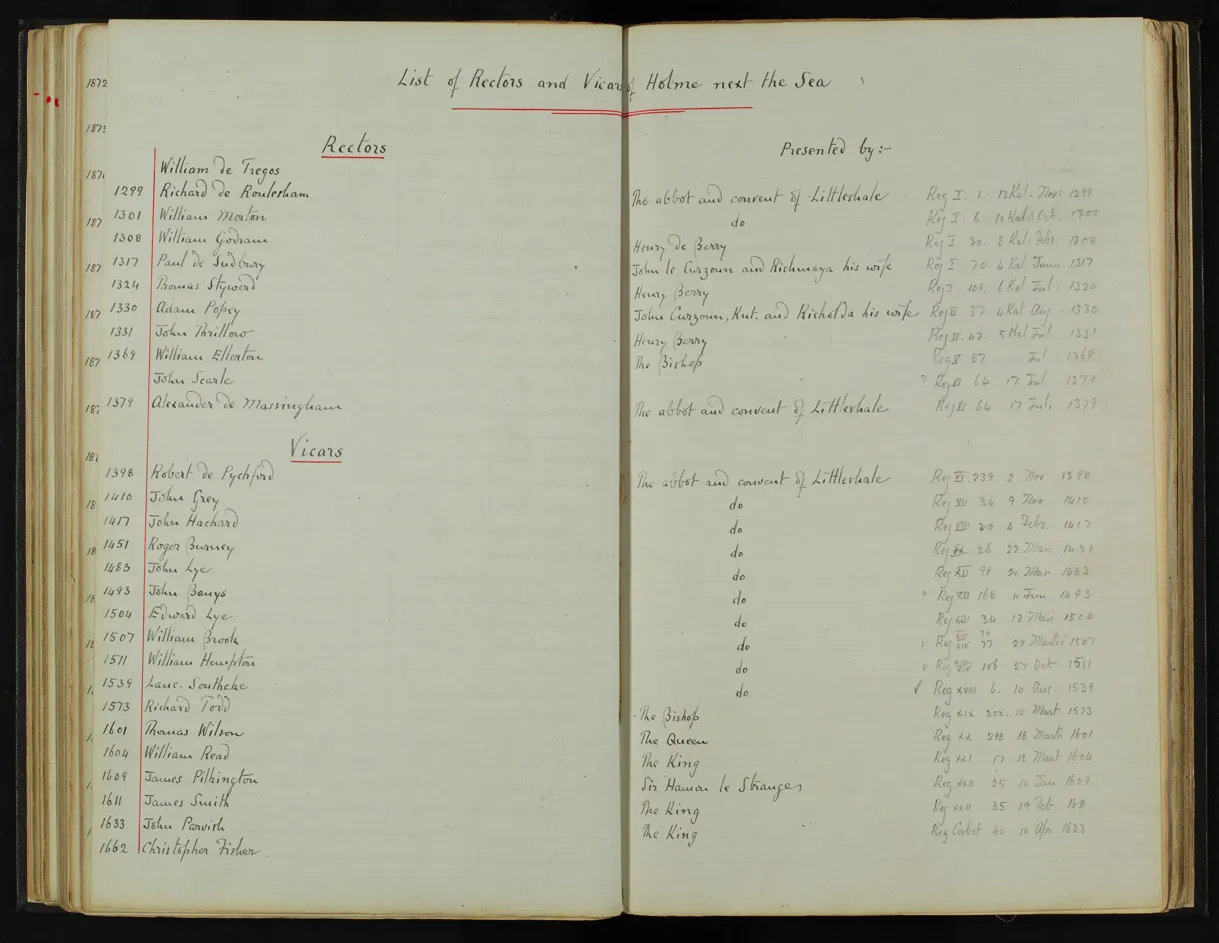 List of Rectors and Vicars of Holme next the Sea
1872
1873
Rectors
Presented by:-
William de Tregos
1299 Richard de Roulesham The abbot and convent of Littleshale Reg I. 1. 13 Kal. Nov: 1299
1301 William Morton do Reg I. 6. 10 Kal Oct. 1301
1308 William Godram Henry de Berry Reg I. 30. 8 Kal: Febr. 1308
1317 Paul de Sudbury John le Curzoun and Richmaya his wife Reg I. 70 4 Kal Junii 1317
1324 Thomas Styward Henry Berry Reg I. 109. 6 Kal Jul: 1320
1330 Adam Popey John Curzoun, Knt. and Richolda his wife Reg II. 37 4 Kal Aug. 1330
1331 John Thrillow Henry Berry Reg II. 42. 5 Kal Jul 1331
1369 William Ellerton The Bishop Reg V 87. Jul 1369
John Scarle ? Reg VI 64 17 Jul 1379
1379 Alexander de Massingham The abbot and convent of Littleshale Reg VI 64 17 Juli 1379
Vicars
1398 Robert de Pychford The abbot and convent of Littleshale Reg VI. 239 2 Nov 1398
1410 John Grey do Reg VII 34 9 Nov 1410
1417 John Hachard do Reg VIII 20 4 Febr. 1417
1451 Roger Burney do Reg 26 22 Maii 1451
1483 John Lye do Reg XII 98 Mar 1483
1493 John Banys do ? Reg XII 168 11 Jun 1493
1504 Edward Lye do Reg XIII 34 12 Maii 1504
1507 William Brook do v Reg XIV 77 29 Martii 1507
1511 William Hempton do v Reg XIV 106 27 Oct 1511
1539 Lanc. Southeke do √ Reg XVIII 6. 10 Aug. 1539
1573 Richard Todd The Bishop Reg XIX 200. 10 Mart 1573
1601 Thomas Wilson The Queen Reg XX 298 18 Martii 1601
1604 William Read The King Reg XXI 17 12 Mart 1604
1609 James Pilkington Sir Hamon le Strange Reg XXII 25 10 Jan 1609
1611 James Smith The King Reg XXII 35 19 Feb 1611
1633 John Parvish The King Reg Corbet 40 10 Apr 1633
1662 Christopher Fisher.